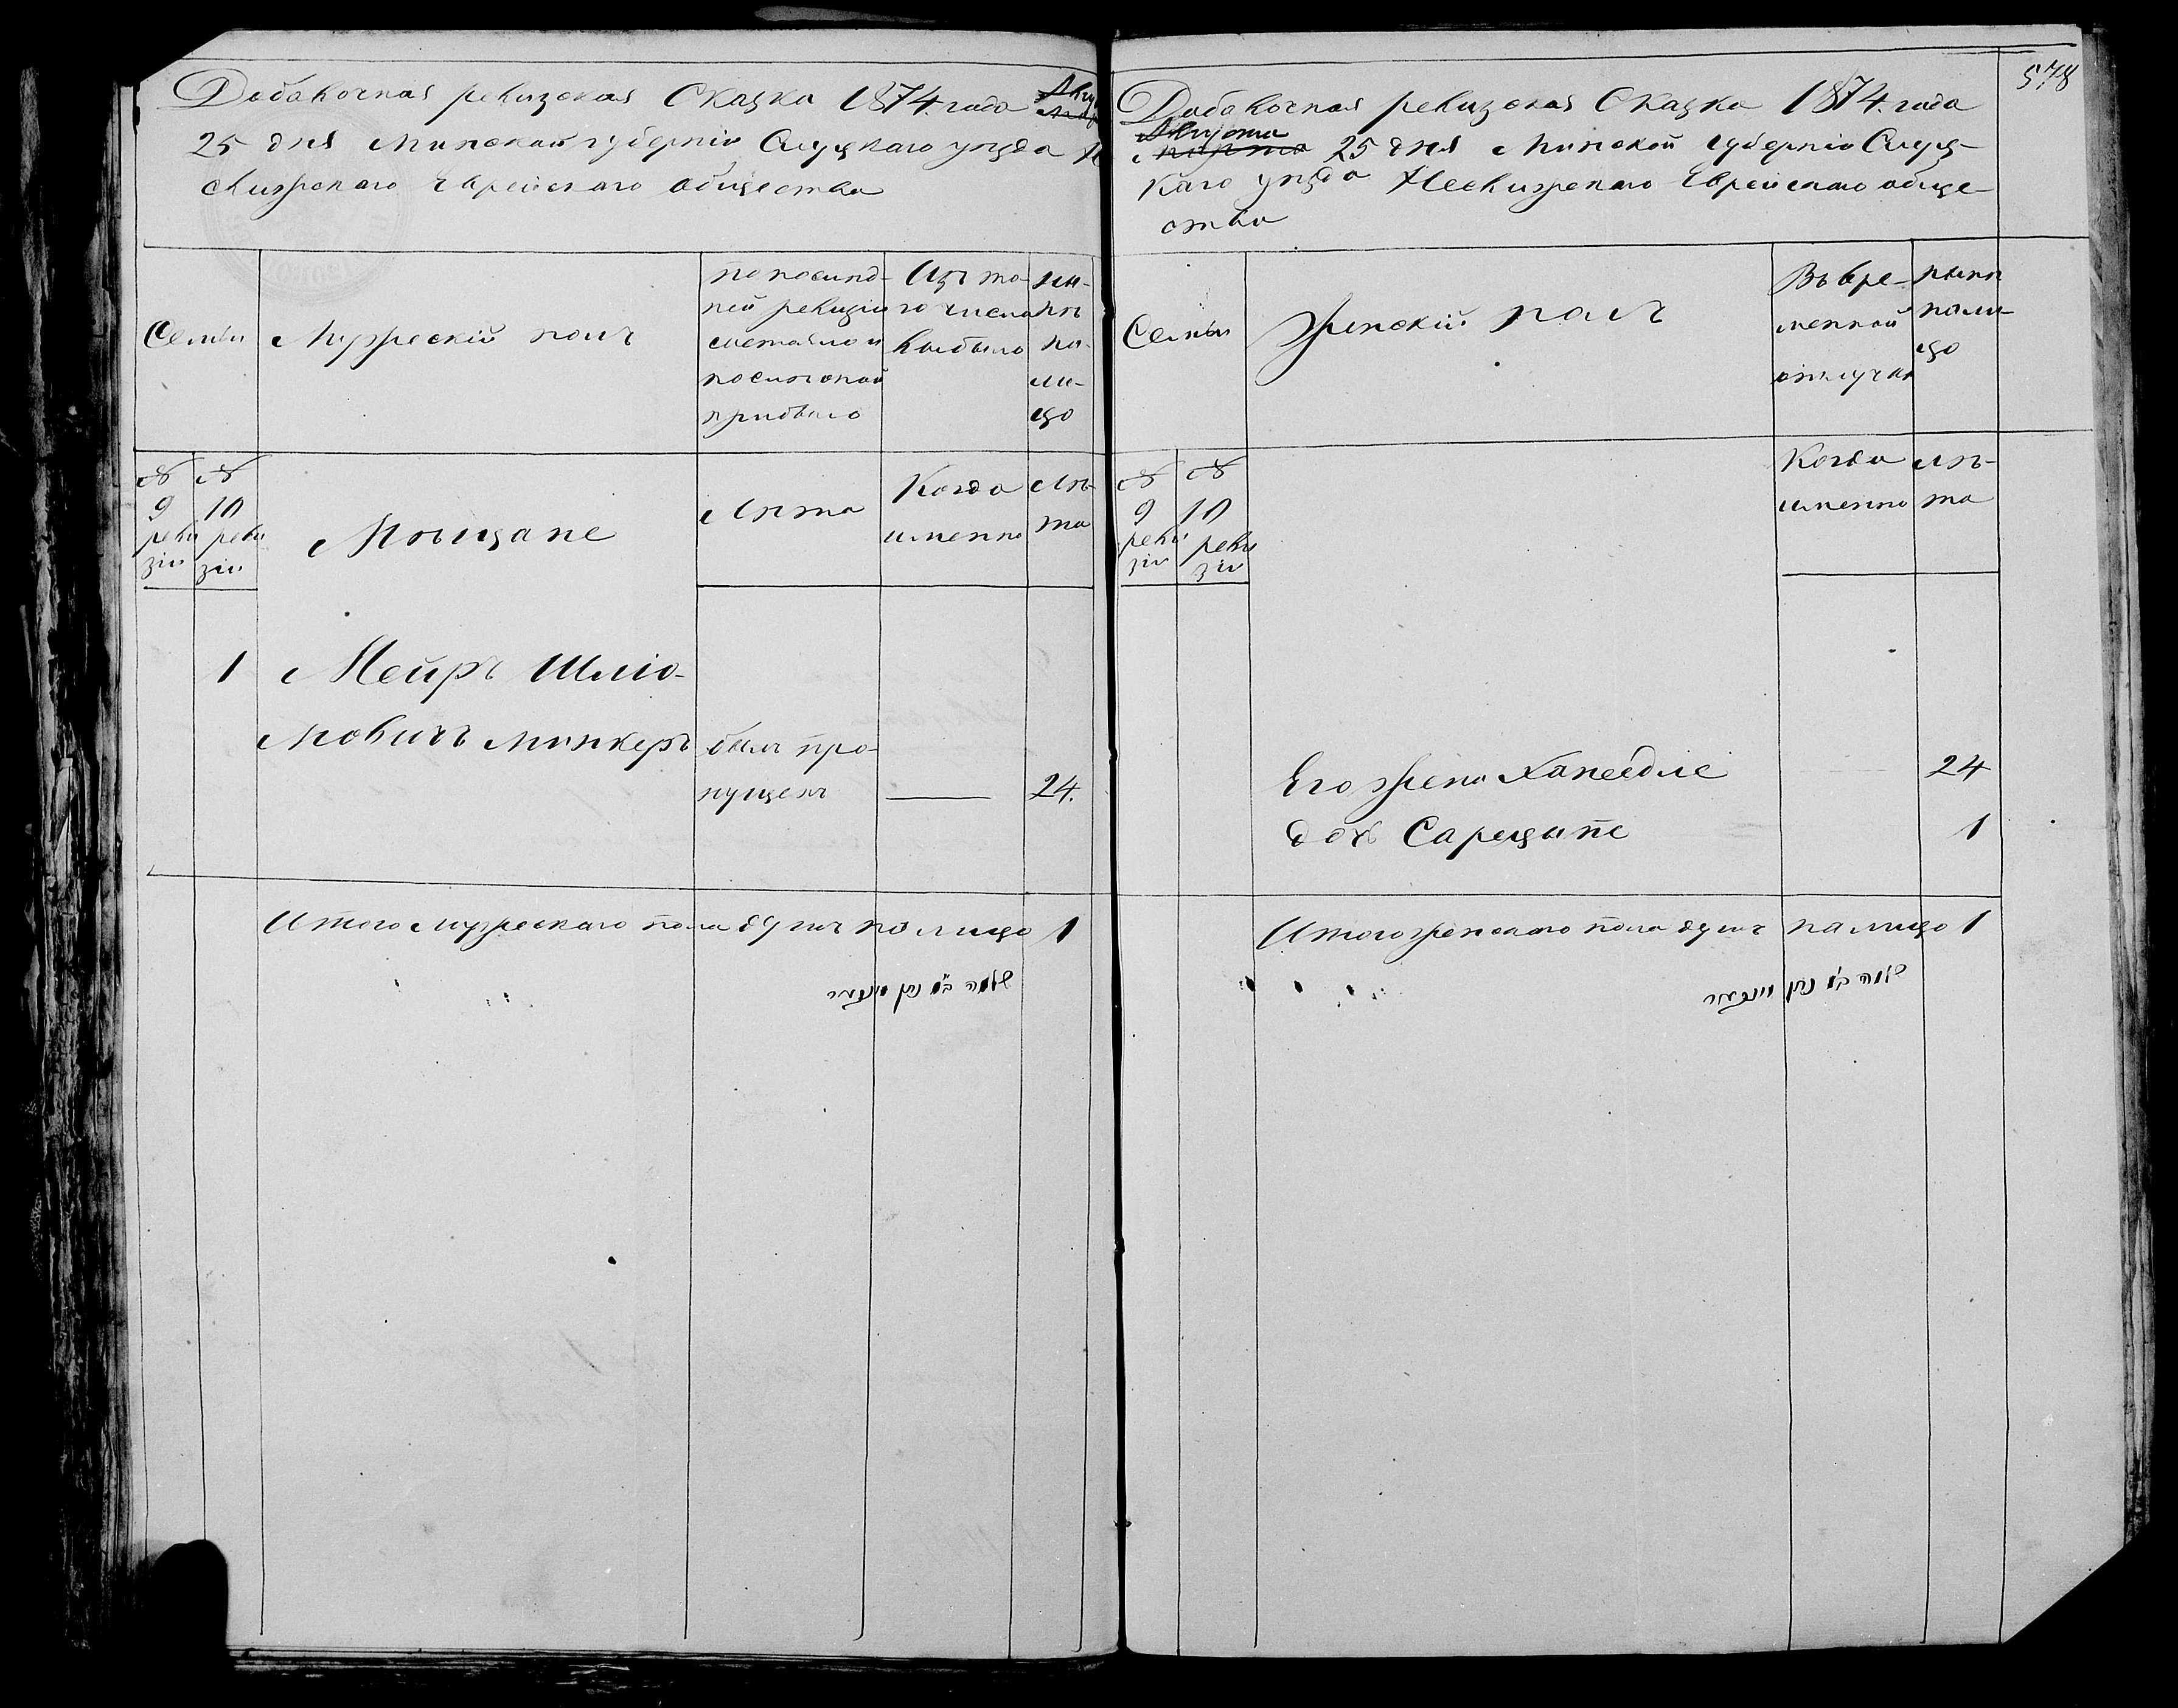 Добавочная ревизская Сказка 1874. года
25 дня Минской губерніи Слуцкаго уѣзда Не
свижскаго Еврейскаго общества
Семьи
Мужескій полъ
по послѣд-
ней ревизіи
состояло и
послѣ оной
прибыло
Изъ то-
го числа
выбыло
ны-
нѣ
на-
ли-
цо
№
9
реви
зіи
№
10
реви
зіи
Мѣщане
Лѣта
Когда
именно
Лѣ-
та
1
Мейръ Шліо-
мовичъ Минкеръ
былъ про-
пущенъ
24.
Итого мужескаго пола душъ на лицо 1
578
Добавочная ревизская Сказка 1874. года
Августа
Марта 25 дня Минской губерніи Слуц-
каго уѣзда Несвижскаго Еврейскаго обще-
ства
Семьи
Женскій полъ
Въ вре-
менной
отлучкѣ
нынѣ
нали-
цо
№
9
реви
зіи
№
10
реви
зіи
Когда
именно
лѣ-
та
Его жена Ханеедле 24
дочь Сарецыпе 1
Итого женскаго пола душъ на лицо 1